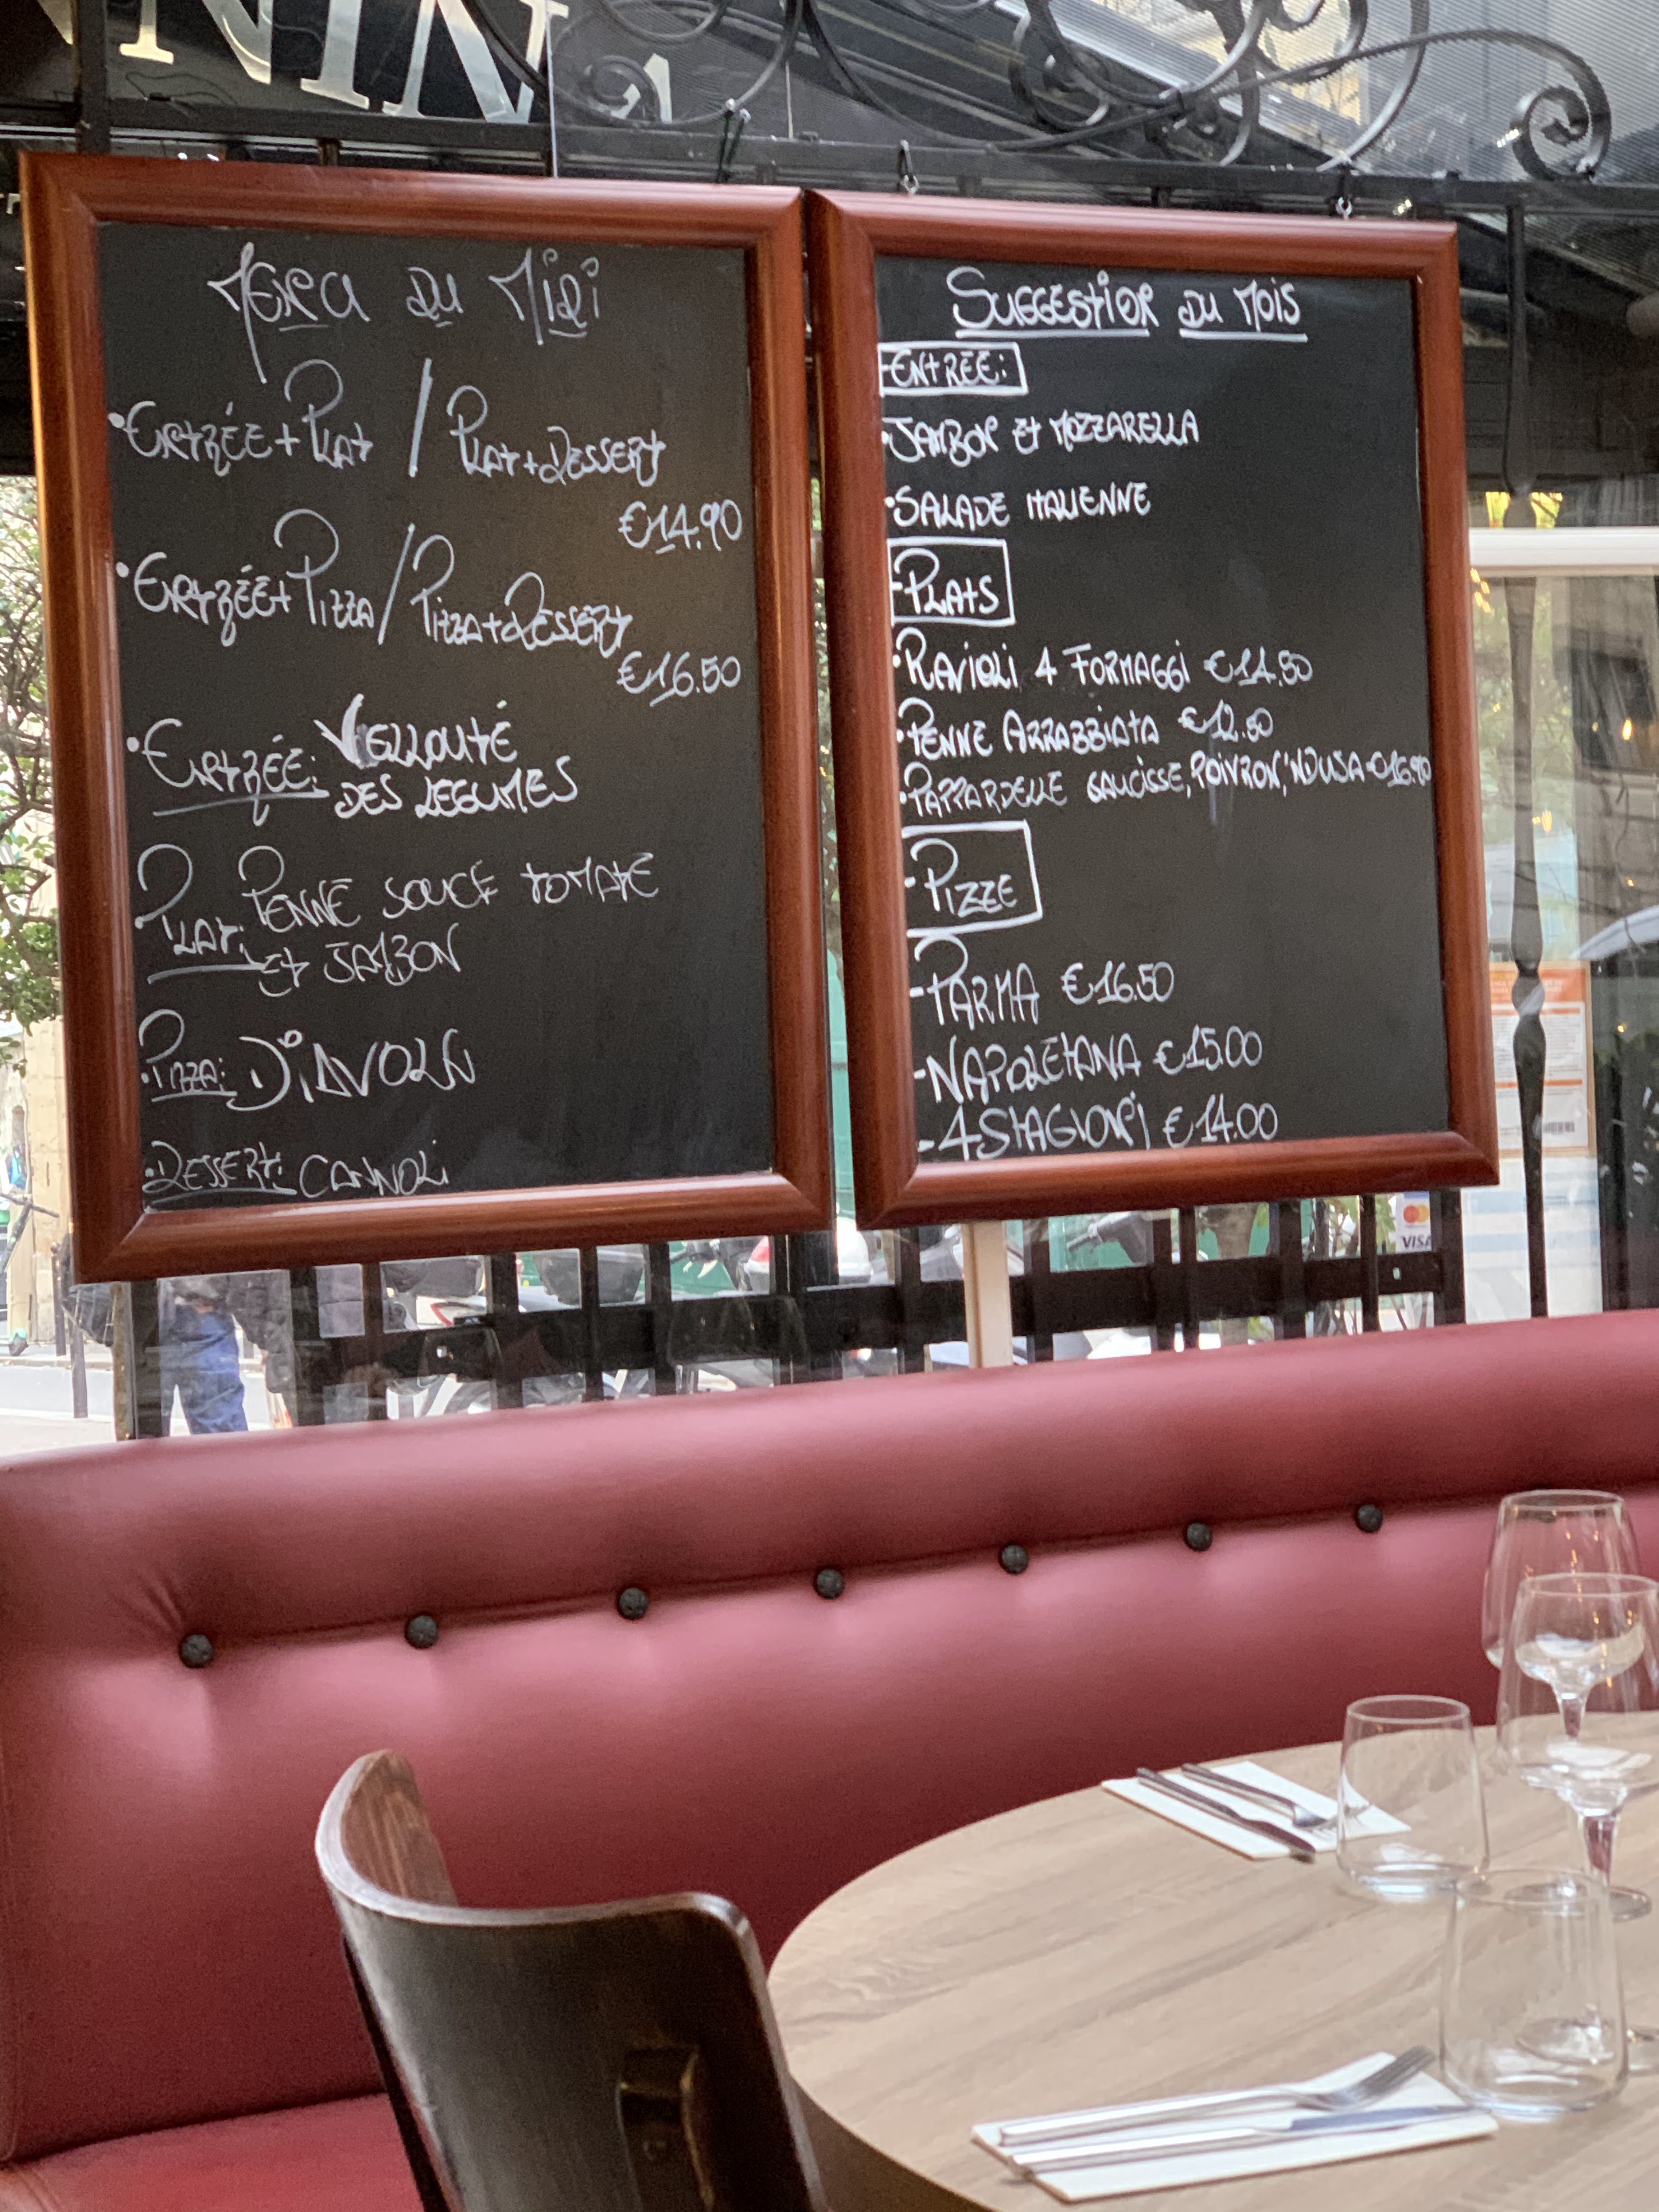 NINA
Menu du Midi
•Entrée+Plat / Plat+Dessert
€14.90
•Entrée+Pizza/Pizza+Dessert
€16.50
•Entrée: Vellouté
des legumes
Plat: Penne souce tomate
et jambon
•Pizza: Diavola
•Dessert: Cannoli
Suggestion du Mois
-Entrée:
•Jambon et mozzarella
•Salade italienne
-Plats
•Ravioli 4 Formaggi €14.50
•Penne Arrabbiata €12.50
•Pappardelle saucisse, poivron, 'nduja €16.90
-Pizze
-Parma €16.50
-Napoletana €15.00
-4 Stagioni €14.00
VISA